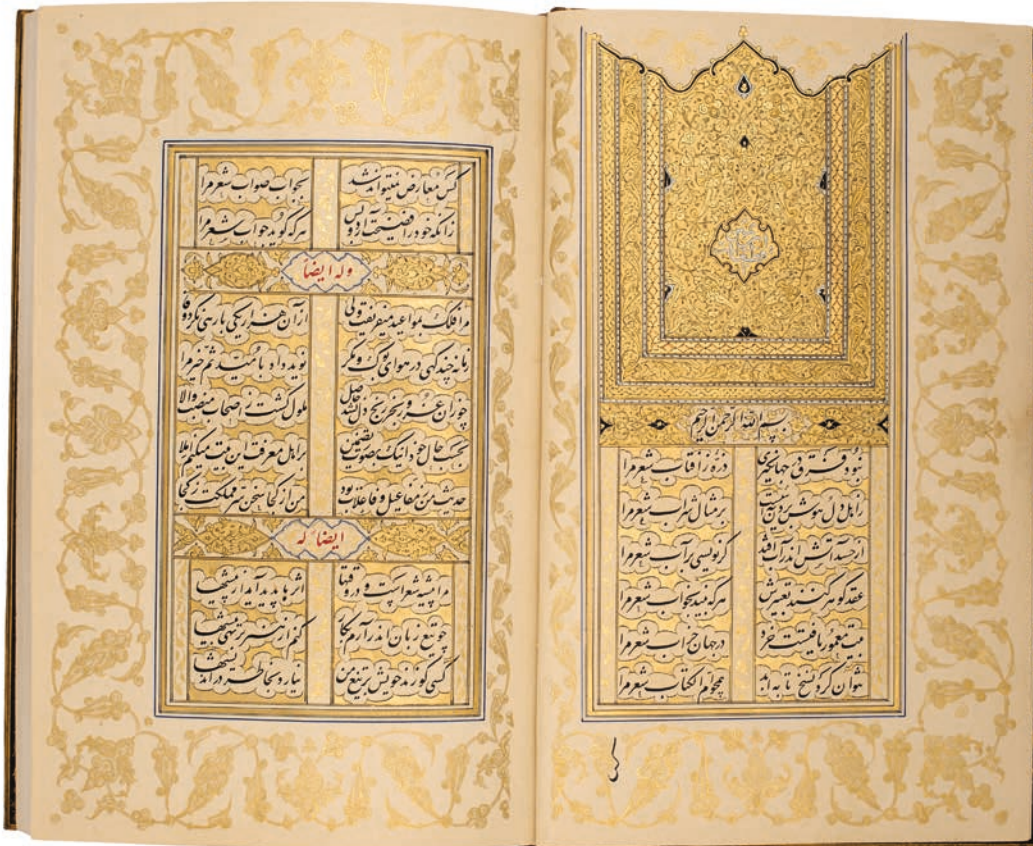 بسم الله الرحمن الرحیم
نبود فرق در جهانگیری ذره را ز آفتاب شعر مرا
ز اهل دل هوش بردن بر مثال شراب شعر مرا
از حسد آتش اندر آب افتد گر نویسی بر آب شعر مرا
عقد گوهر کنند تعبیرش هر که بیند بخواب شعر مرا
بیت معمور یافتست خرد در جهان خراب شعر مرا
نتوان کرد نسخ تا به ابد همچو ام الکتاب شعر مرا
کس
کس معارض نمیتواند شد بجواب صواب شعر مرا
زانکه خود را فضیحت آرد و بس هر که گوید جواب شعر مرا
وله ایضاً
مرا فلک بمواعید میفریفت ولی از آن هزار یکی بار نکرد وفا
زمانه چند گهی در هوای بوک و مگر نوید داد بامید ثم خیر مرا
چو زان بجز رنج دل نشد حاصل ملول گشت ز اصحاب منصب والا
بحسب حال خود اینک تضمین بر اهل معرفت این بیت میکنم املا
حدیث من ز مفاعیل و فاعلات بود من از کجا سخن سر مملکت ز کجا
ایضا له
مرا پیشه شعرست و در وقتها اثرها پدید آید از پیشها
چو تیغ زبان اندر آرم بکار کنم از
کسی کو زند خویش بر تیغ من نیارد بخاطر در اندیشها